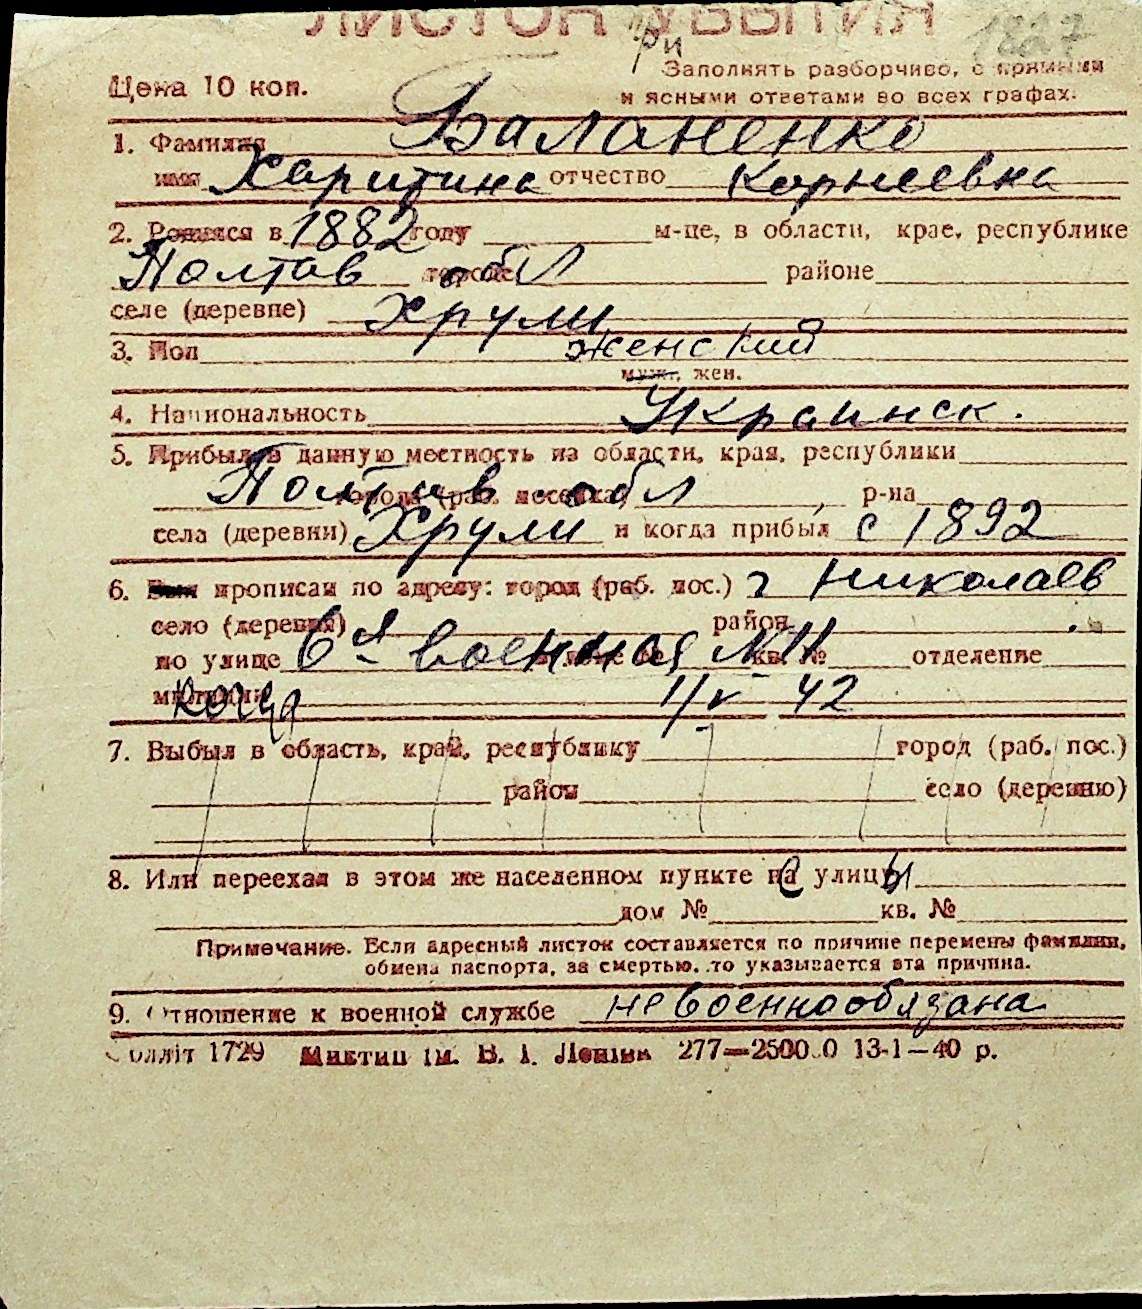 ЛИСТОК УБЫТИЯ
при
1827
Цена 10 коп.
Заполнять разборчиво, с прямыми
и ясными ответами во всех графах.
1. Фамилия Баланенко
имя Харитина отчество Корнеевна
2. Родился в 1882 году м-це, в области, крае, республике
Полтав обл городе районе
селе (деревне) Хрули
3. Пол женский
муж., жен.
4. Национальность Украинск.
5. Прибыл в данную местность из области, края, республики
Полтав обл города (раб. поселка) р-на
села (деревни) Хрули и когда прибыл с 1892
6. Был прописан по адресу: город (раб. пос.) г Николаев
село (деревня) район
по улице 6я военная N11 кв. № отделение
милиции когда 1/V 42
7. Выбыл в область, край, республику город (раб. пос.)
район село (деревню)
8. Или переехал в этом же населенном пункте с улицы
дом № кв. №
Примечание. Если адресный листок составляется по причине перемены фамилии,
обмена паспорта, за смертью, то указывается эта причина.
9. Отношение к военной службе невоеннообязана
олліт 1729 Миктип ім. В. І. Леніна 277—2500.0 13-1—40 р.